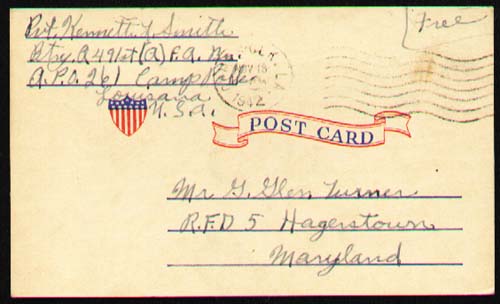 Pvt. Kenneth L. Smith
Free
Btry. A 491st (A) F.A. Bn.
A.P.O. 261 Camp Polk
Louisiana
U.S.A.
NOV 13
1942
POST CARD
Mr G. Glen Turner
R.F.D 5 Hagerstown
Maryland